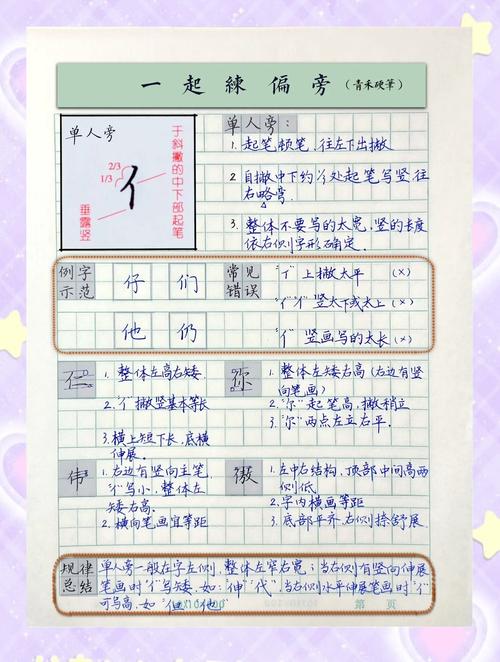 一起練偏旁（青禾硬筆）
单人旁
于斜撇的中下部起笔
2/3
1/3
亻
垂露竖
单人旁：
1. 起笔顿笔，往左下出撇
2. 自撇中下约亻处起笔写竖，往
右略弯。
3. 整体不要写的太宽，竖的长度
依右侧字形确定。
例字
示范
仔 们
他 仍
常见
错误
"亻"上撇太平 （×）
"亻""亻"竖太下或太上（×）
"亻"竖画写的太长（×）
仁
1. 整体左高右矮.
2. "亻"撇竖基本等长
3. 横上短下长，底横
伸展.
你
1. 整体左矮右高（右边有竖
向笔画）
2. "尔"起笔高，撇稍立
3. "尔"两点左立右平.
伟
1. 右边有竖向主笔，
亻写小，整体左
矮右高.
2. 横向笔画宜等距
傲
1. 左中右结构，顶部中间高两
侧低.
2. 字内横画等距
3. 底部平齐，右侧捺舒展.
规律
总结
单人旁一般在字左侧，整体左窄右宽；当右侧有竖向伸展
笔画时"亻"写矮，如："伸""代"，当右侧水平伸展笔画时"亻"
可写高，如"但""他"
第 页